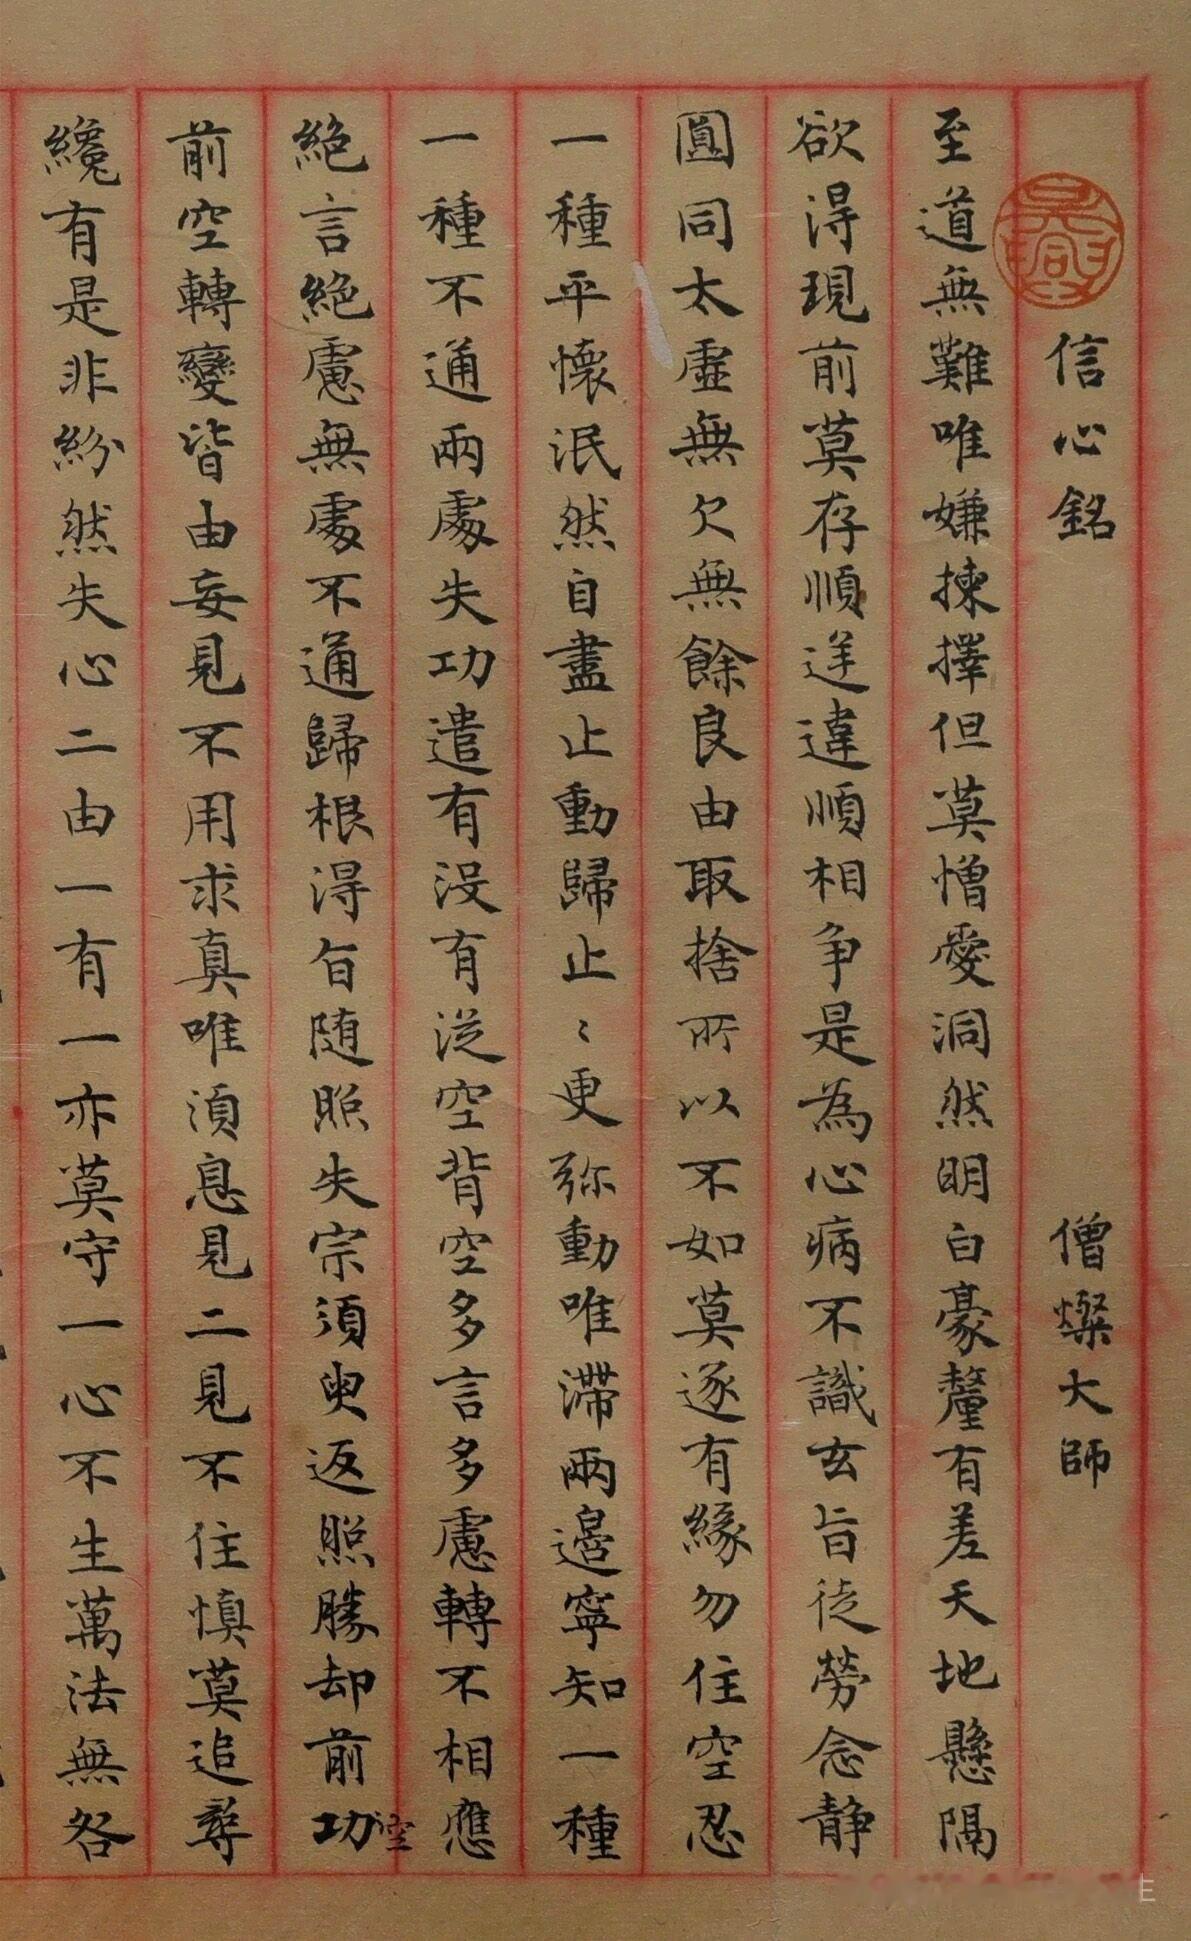 信心銘 僧燦大師
至道無難唯嫌揀擇但莫憎愛洞然明白豪釐有差天地懸隔
欲得現前莫存順逆違順相争是為心病不識玄旨徒勞念静
圓同太虛無欠無餘良由取捨所以不如莫逐有緣勿住空忍
一種平懷泯然自盡止動歸止〻更弥動唯滯兩邊寧知一種
一種不通兩處失功遣有没有従空背空多言多慮轉不相應
絕言絕慮無處不通歸根得旨随照失宗須臾返照勝却前功空
前空轉變皆由妄見不用求真唯湏息見二見不住慎莫追尋
纔有是非紛然失心二由一有一亦莫守一心不生萬法無各